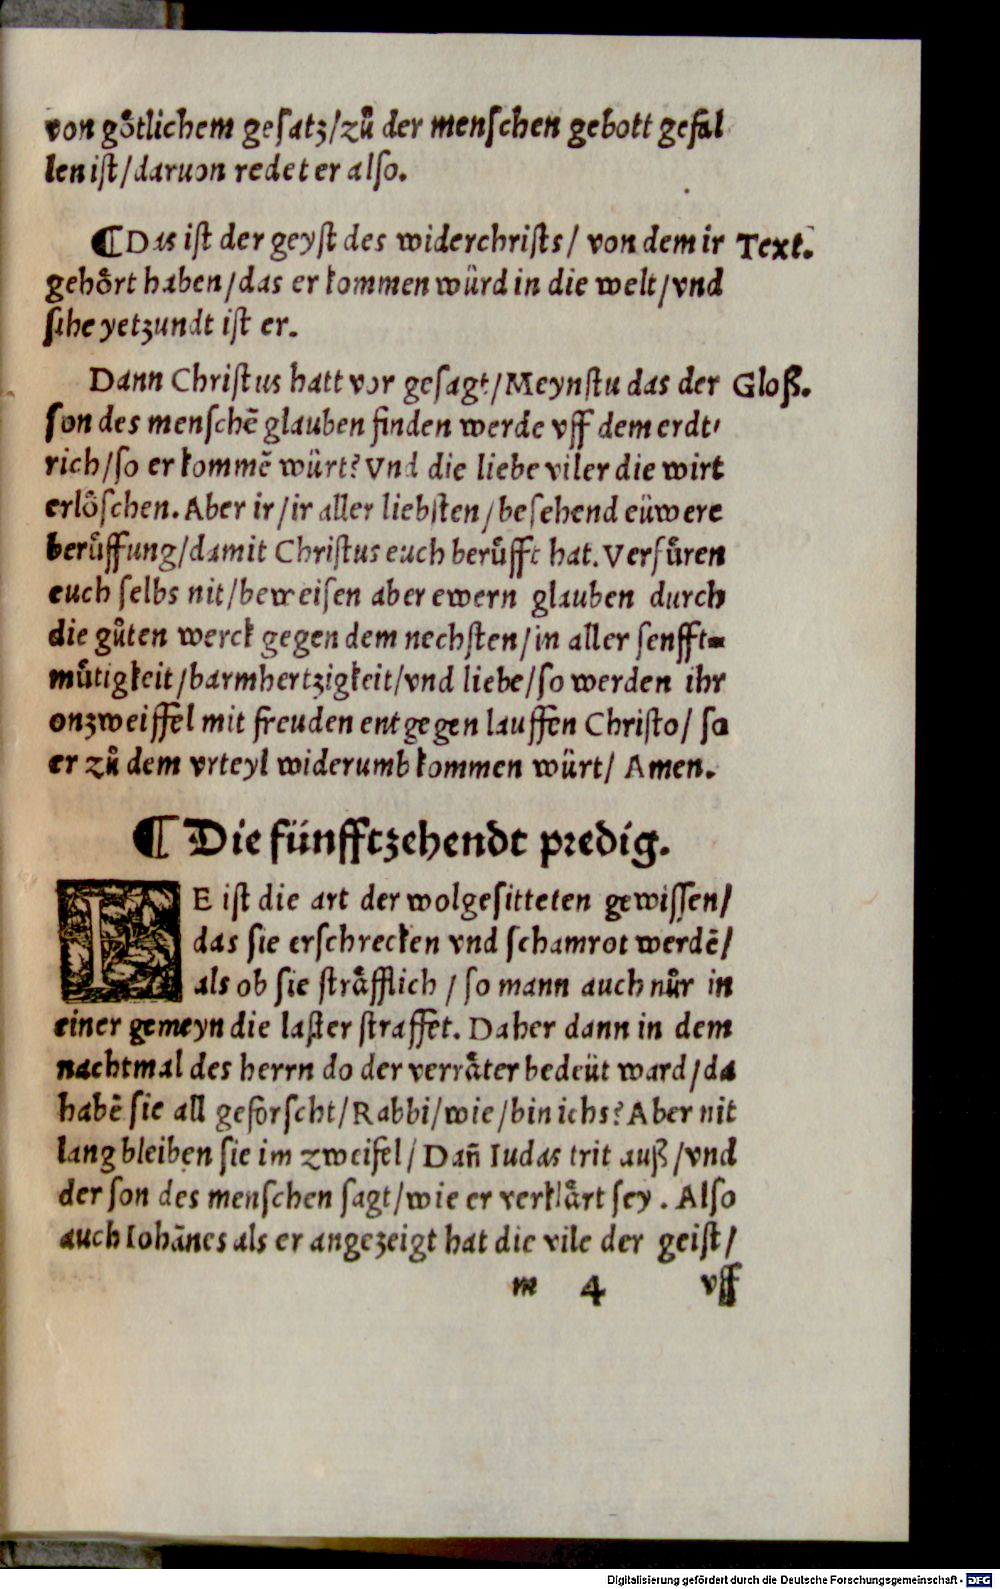 von goͤtlichem geſatz/zů der menſchen gebott gefal
len iſt/daruon redet er alſo.
¶Das iſt der geyſt des widerchriſts/ von dem ir Text.
gehoͤrt haben/das er kommen würd in die welt/vnd
ſihe yetzundt iſt er.
Dann Chriſtus hatt vor geſagt/Meynſtu das der Gloß.
ſon des menſchē glauben finden werde vff dem erdt⸗
rich/ſo er kommē würt? Vnd die liebe viler die wirt
erloͤſchen. Aber ir/ir aller liebſten/beſehend eüwere
berůffung/damit Chriſtus euch berůfft hat. Verfůren
euch ſelbs nit/beweiſen aber ewern glauben durch
die gůten werck gegen dem nechſten/in aller ſenfft⸗
můtigkeit/barmhertzigkeit/vnd liebe/ſo werden ihr
onzweiffel mit freuden entgegen lauffen Chriſto/ ſo
er zů dem vrteyl widerumb kommen würt/ Amen.
¶ Die fünfftzehendt predig.
IE iſt die art der wolgeſitteten gewiſſen/
das ſie erſchrecken vnd ſchamrot werdē/
als ob ſie ſtraͤfflich / ſo mann auch nůr in
einer gemeyn die laſter ſtraffet. Daher dann in dem
nachtmal des herrn do der verraͤter bedeüt ward/da
habē ſie all geforſcht/Rabbi/wie/bin ichs? Aber nit
lang bleiben ſie im zweifel/ Dañ Iudas trit auß/vnd
der ſon des menſchen ſagt/wie er verklaͤrt ſey. Alſo
auch Iohānes als er angezeigt hat die vile der geiſt/
m 4 vff
Digitalisierung gefördert durch die Deutsche Forschungsgemeinschaft - DFG